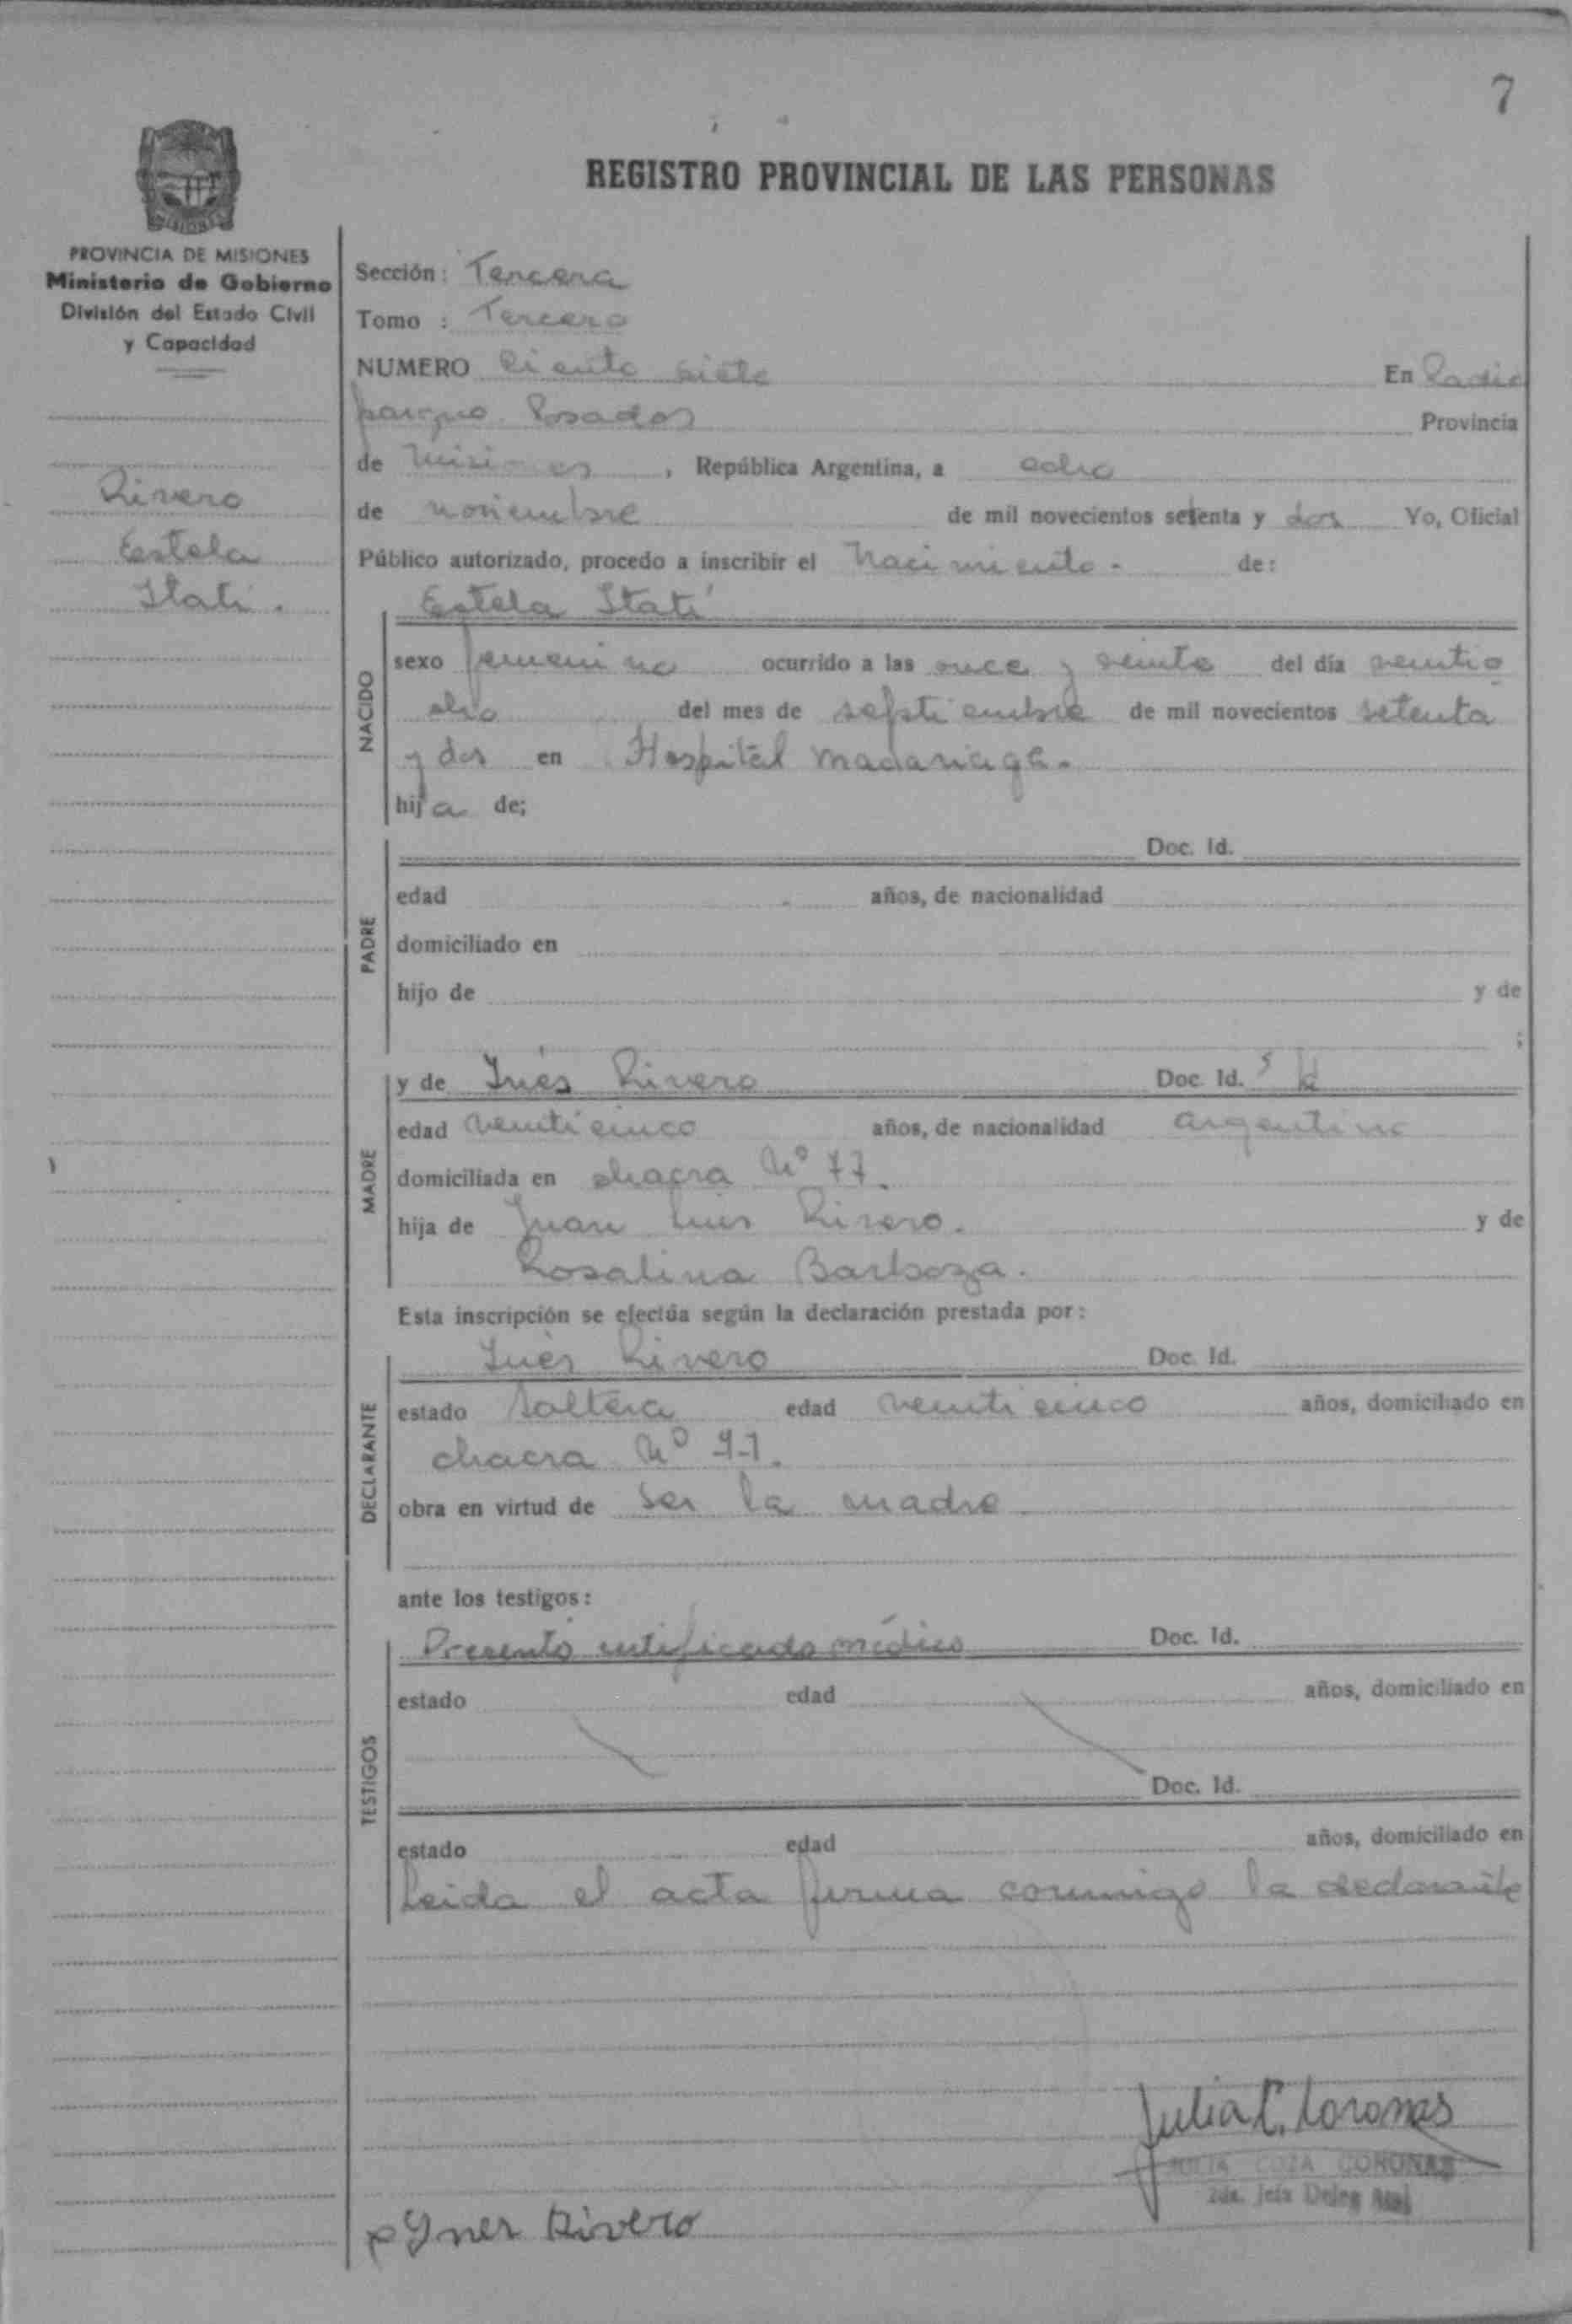 7
REGISTRO PROVINCIAL DE LAS PERSONAS
MISIONES
PROVINCIA DE MISIONES
Ministerio de Gobierno
División del Estado Civil
y Capacidad
Rivero
Estela
Itatí.
Sección: Tercera
Tomo : Tercero
NUMERO Ciento siete En Radio
parque Posadas Provincia
de Misiones, República Argentina, a ocho
de noviembre de mil novecientos setenta y dos Yo, Oficial
Público autorizado, procedo a inscribir el Nacimiento. de:
Estela Itatí
NACIDO
sexo femenino ocurrido a las once y veinte del día veintio
cho del mes de septiembre de mil novecientos setenta
y dos en Hospital Madariaga.
hija de;
PADRE
Doc. Id.
edad años, de nacionalidad
domiciliado en
hijo de y de
;
MADRE
y de Inés Rivero Doc. Id.
edad veinticinco años, de nacionalidad argentina
domiciliada en chacra Nº 77.
hija de Juan Luis Rivero. y de
Rosalina Barboza.
Esta inscripción se efectúa según la declaración prestada por:
DECLARANTE
Inés Rivero Doc. Id.
estado soltera edad veinticinco años, domiciliado en
chacra Nº 77.
obra en virtud de ser la madre
ante los testigos:
TESTIGOS
Presentó certificado médico Doc. Id.
estado edad años, domiciliado en
Doc. Id.
estado edad años, domiciliado en
Leida el acta firma conmigo la declarante
Julia C. Coronas
JULIA COZA CORONAS
2da. Jefa Deleg
Yner Rivero